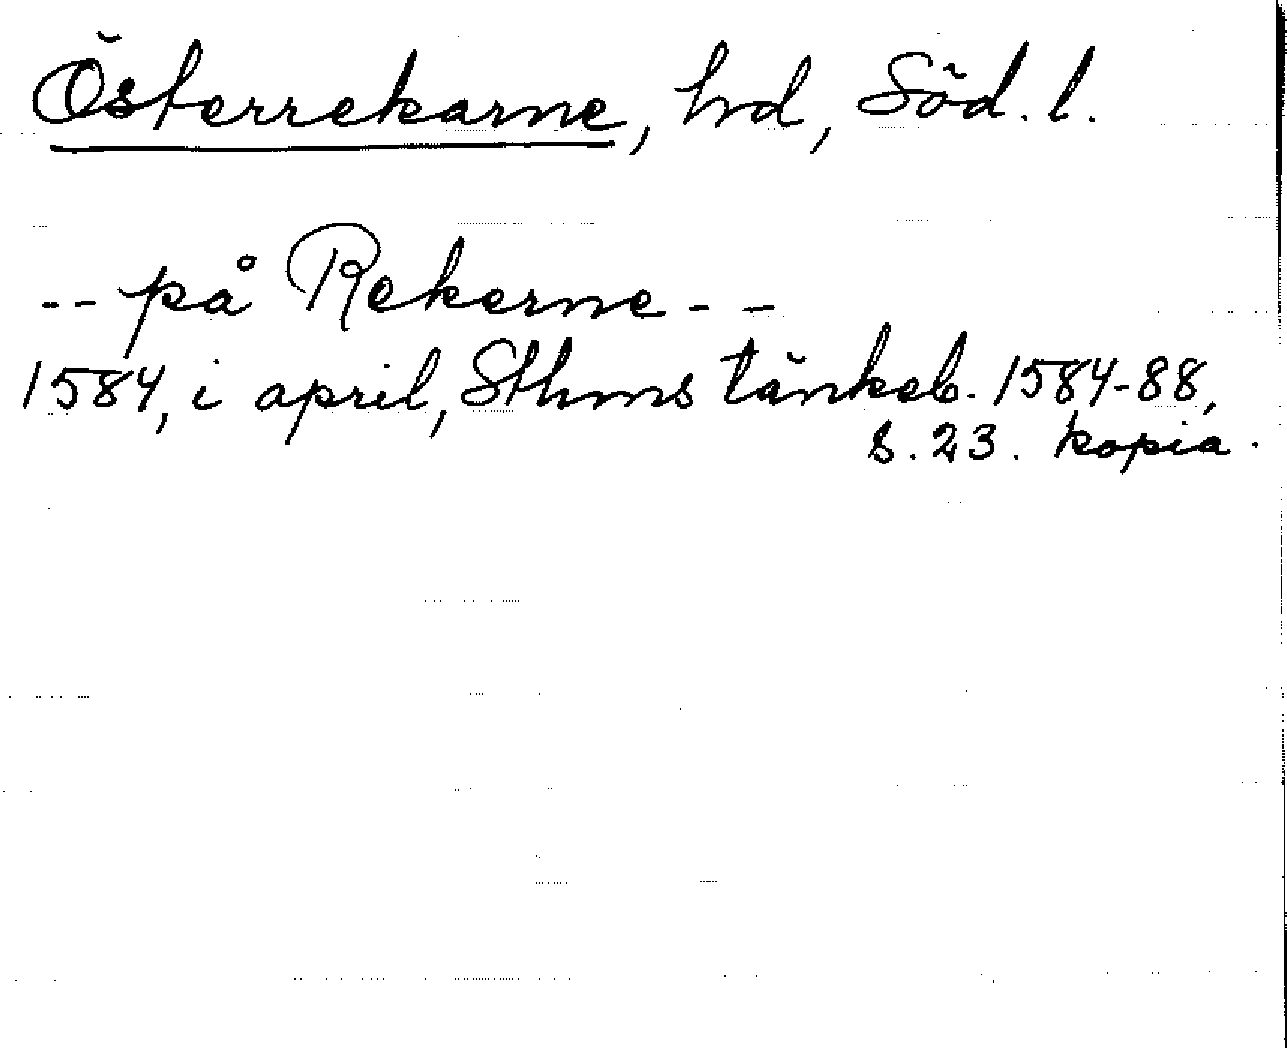 Österrekarne, hd, Söd. l.
-- på Rekerne --
1584, i april, Sthms tänkeb. 1584-88,
s. 23. kopia.